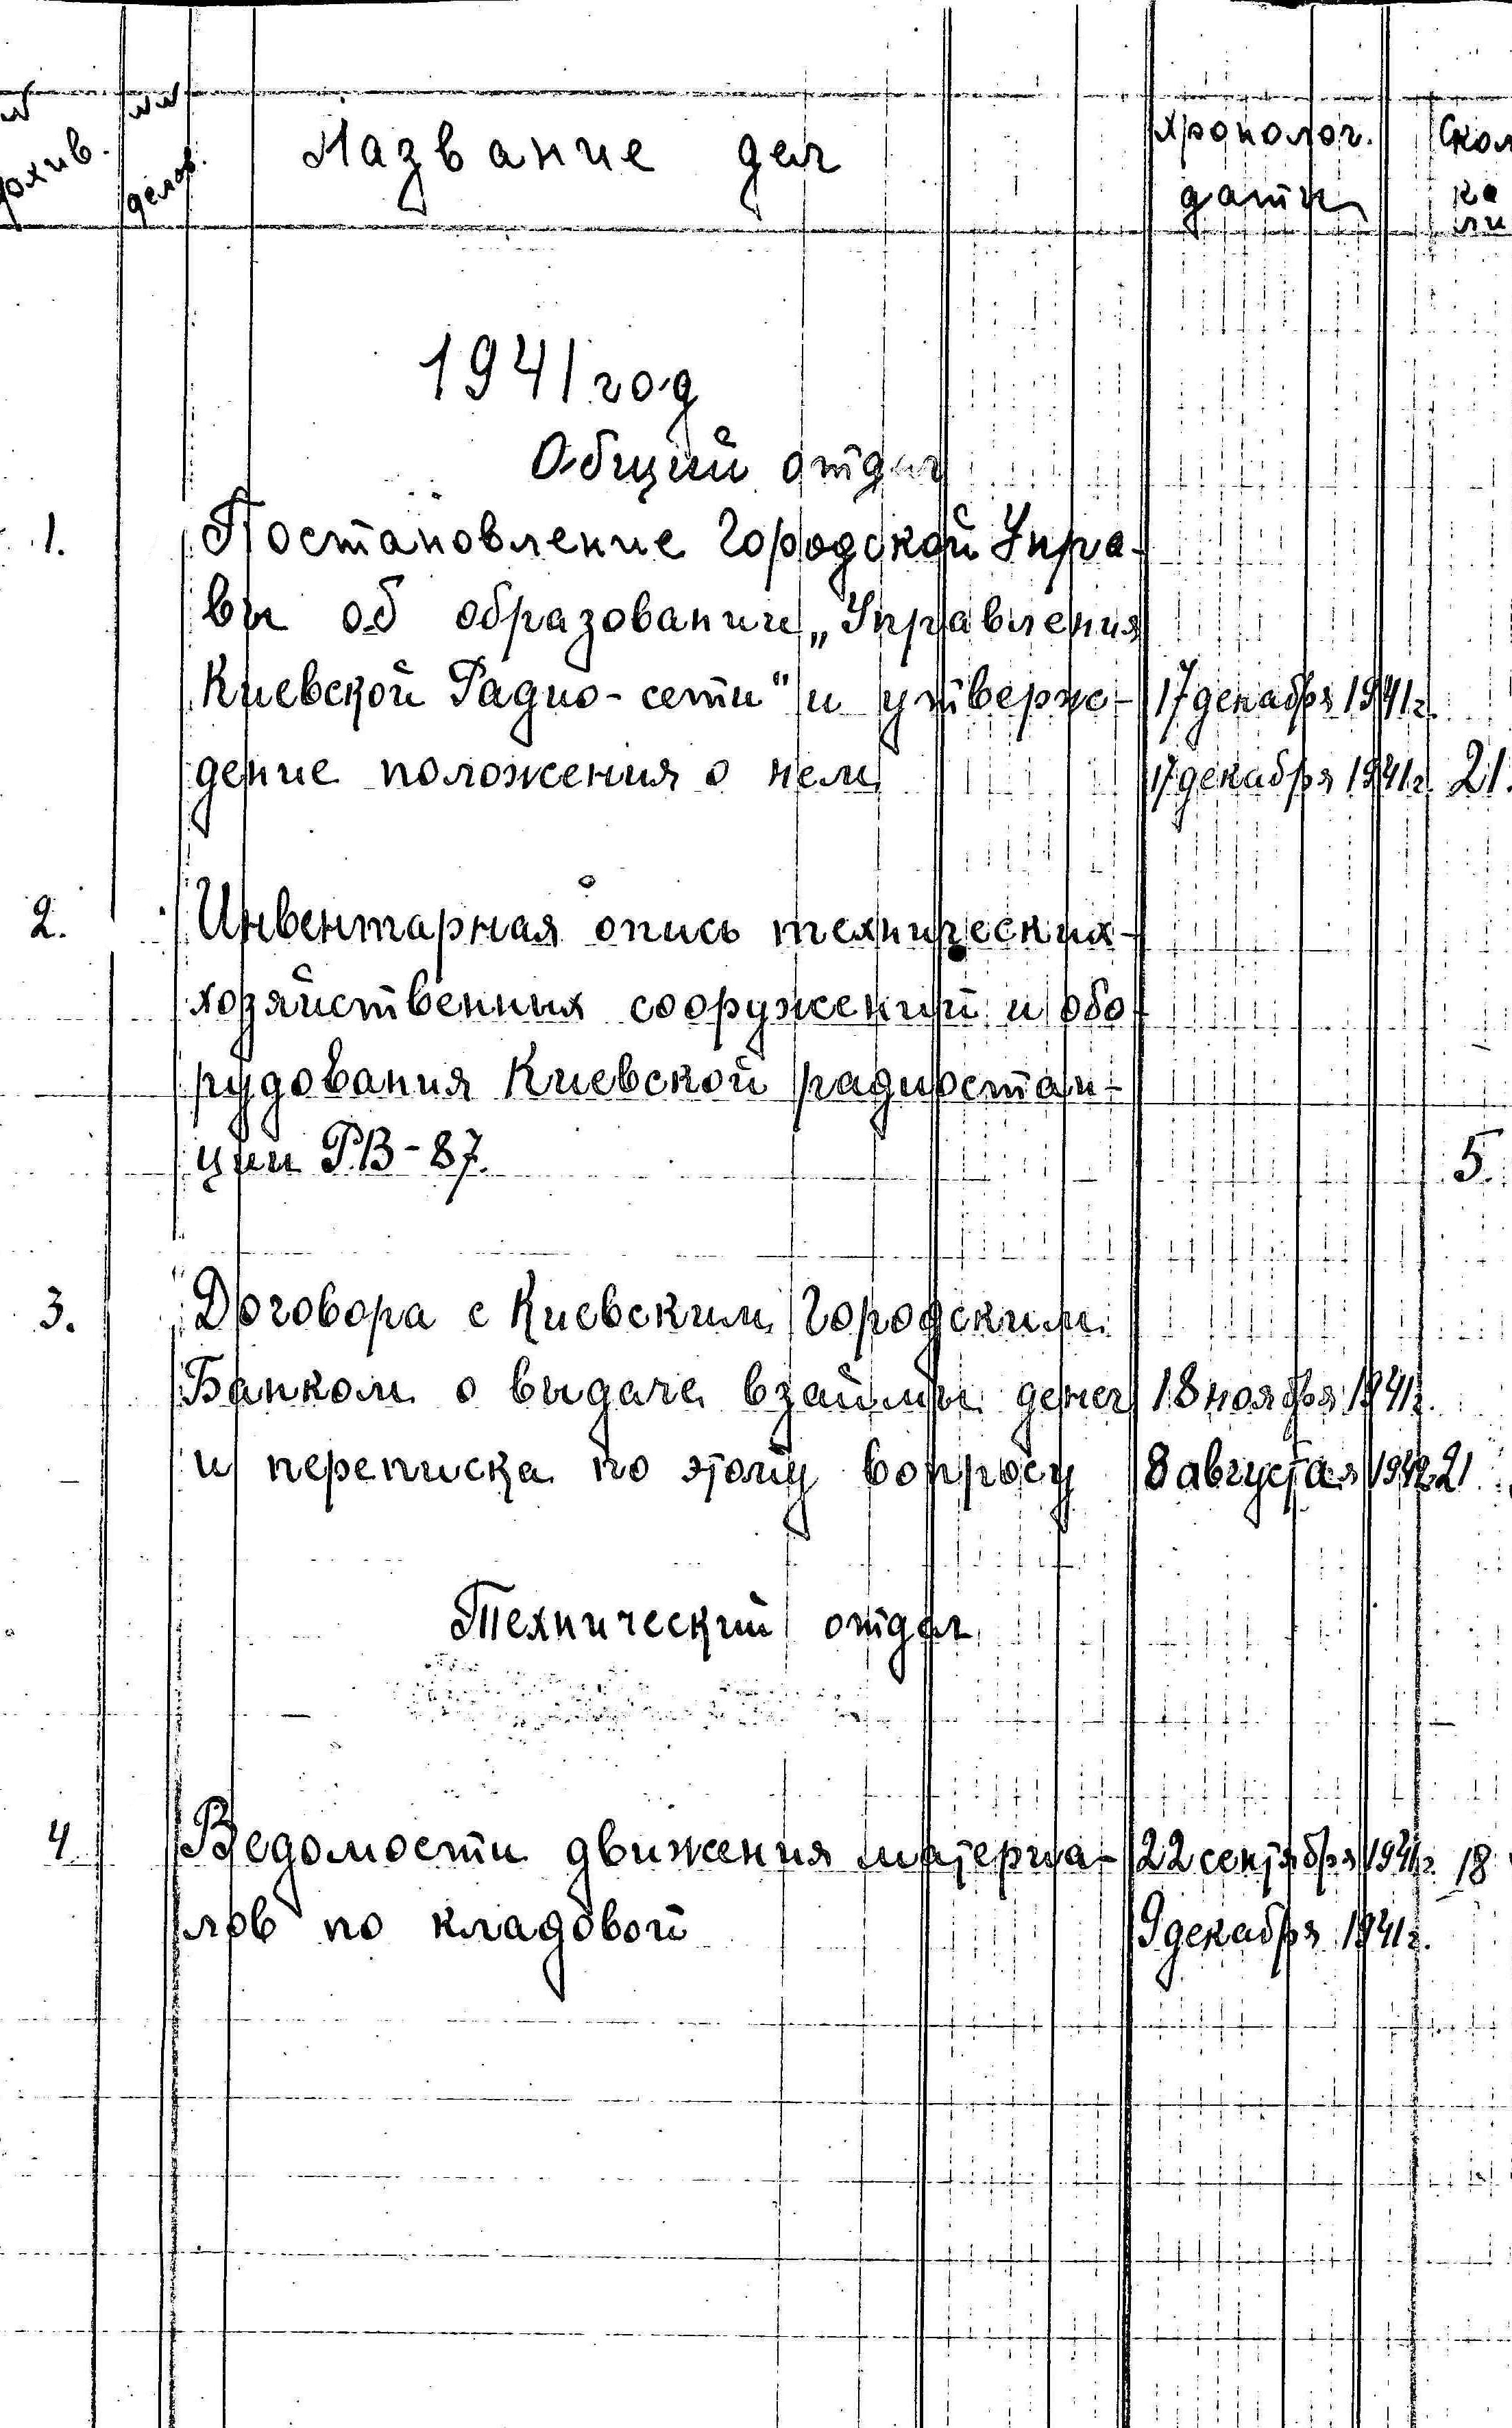 №№ архив.
№№ делов.
Название дел
Хронолог. даты
1941 год
Общий отдел
1. Постановление Городской Упра-
вы об образовании „Управления
Киевской Радио-сети" и утверж- 17 декабря 1941 г.
дение положения о нем 17 декабря 1941 г. 21.
2. Инвентарная опись технических-
хозяйственных сооружений и обо-
рудования Киевской радиостан-
ции РВ-87. 5.
3. Договора с Киевским Городским
Банком о выдаче взаймы денег 18 ноября 1941 г.
и переписка по этому вопросу 8 августая 1942 21
Технический отдел
4 Ведомости движения материа- 22 сентября 1941 г. 18
лов по кладовой 9 декабря 1941 г.